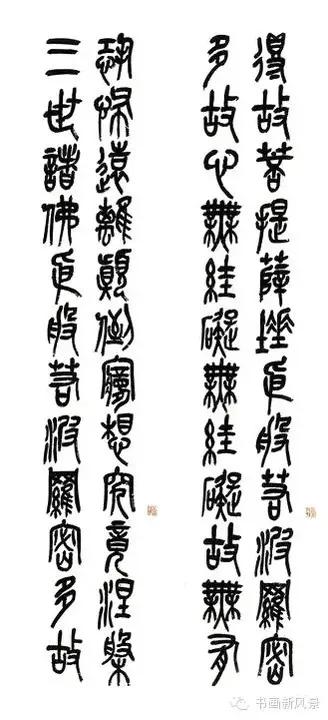 得故菩提薩埵依般若波羅密
多故心無絓礙無絓礙故無有
恐怖遠離顛倒夢想究竟涅槃
三世諸佛依般若波羅密多故
书画新风景